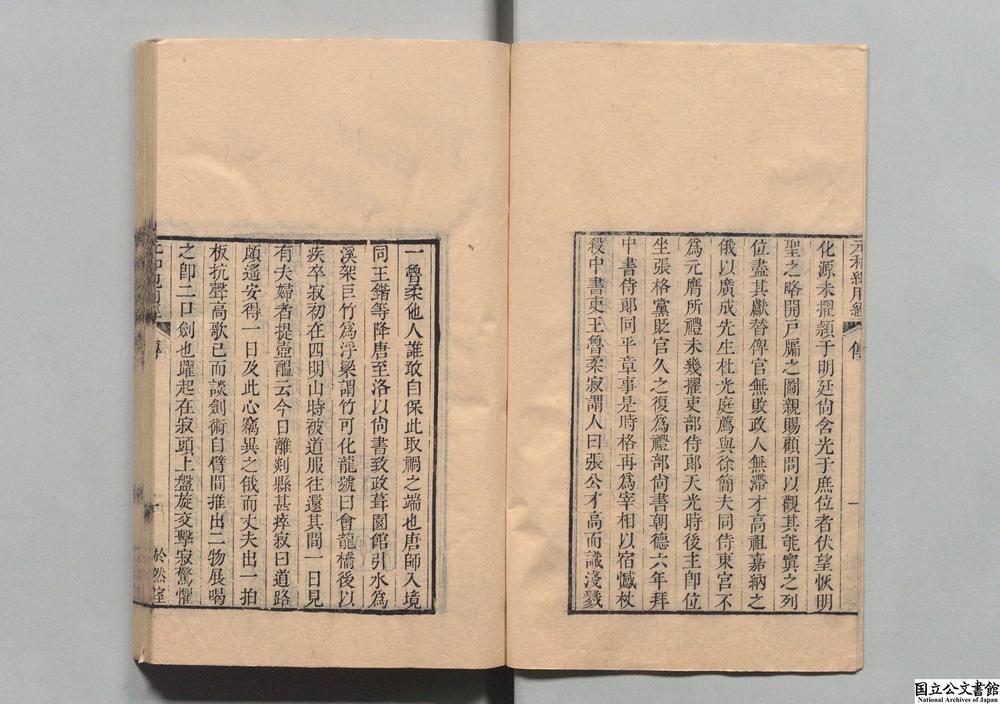 元和紀用經
傳
一
化源未擢穎于明廷尙含光于庶位者伏望恢明
聖之略開戸牖之圖親賜顧問以觀其能寘之列
位盡其獻替俾官無敗政人無滯才高祖嘉納之
俄以廣成先生杜光庭薦與徐簡夫同侍東宮不
爲元膺所禮未幾擢吏部侍郞天光時後主卽位
坐張格黨貶官久之復爲禮部尙書朝德六年拜
中書侍郞同平章事是時格再爲宰相以宿憾杖
殺中書吏王魯柔寂謂人曰張公才高而識淺戮
一魯柔他人誰敢自保此取禍之端也唐師入境
同王鍇等降唐至洛以尙書致政葺園館引水爲
溪架巨竹爲浮梁謂竹可化龍號曰會龍橋後以
疾卒寂初在四明山時被道服往還其間一日見
有夫婦者提壺醞云今日離剡縣甚瘁寂曰道路
頗遙安得一日及此心竊異之俄而丈夫出一拍
板抗聲高歌已而談劍術自臂間推出二物展喝
之卽二口劍也躍起在寂頭上盤旋交擊寂驚懼
傳
於然室
国立公文書館
National Archives of Japan